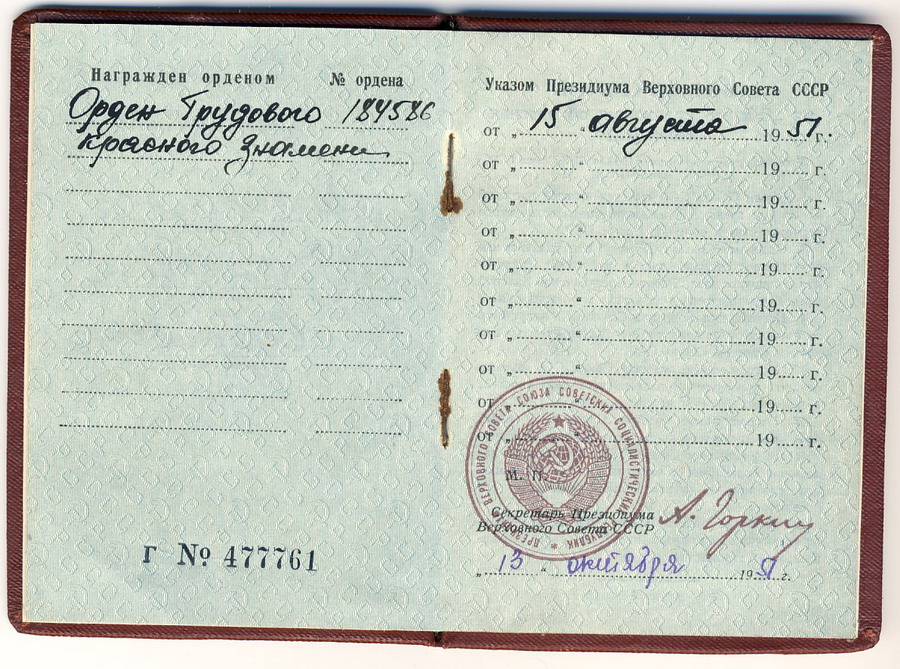 Награжден орденом
№ ордена
Орден Трудового 184586
Красного Знамени
Г № 477761
Указом Президиума Верховного Совета СССР
от „ 15 “ августа 1951 г.
от „ “ 19 г.
от „ “ 19 г.
от „ “ 19 г.
от „ “ 19 г.
от „ “ 19 г.
от „ “ 19 г.
от „ “ 19 г.
от „ “ 19 г.
от „ “ 19 г.
ВЕРХОВНОГО СОВЕТА СОЮЗА СОВЕТСКИХ СОЦИАЛИСТИЧЕСКИХ РЕСПУБЛИК
М. П.
Секретарь Президиума
Верховного Совета СССР
А. Горкин
„ 13 “ октября 1951 г.